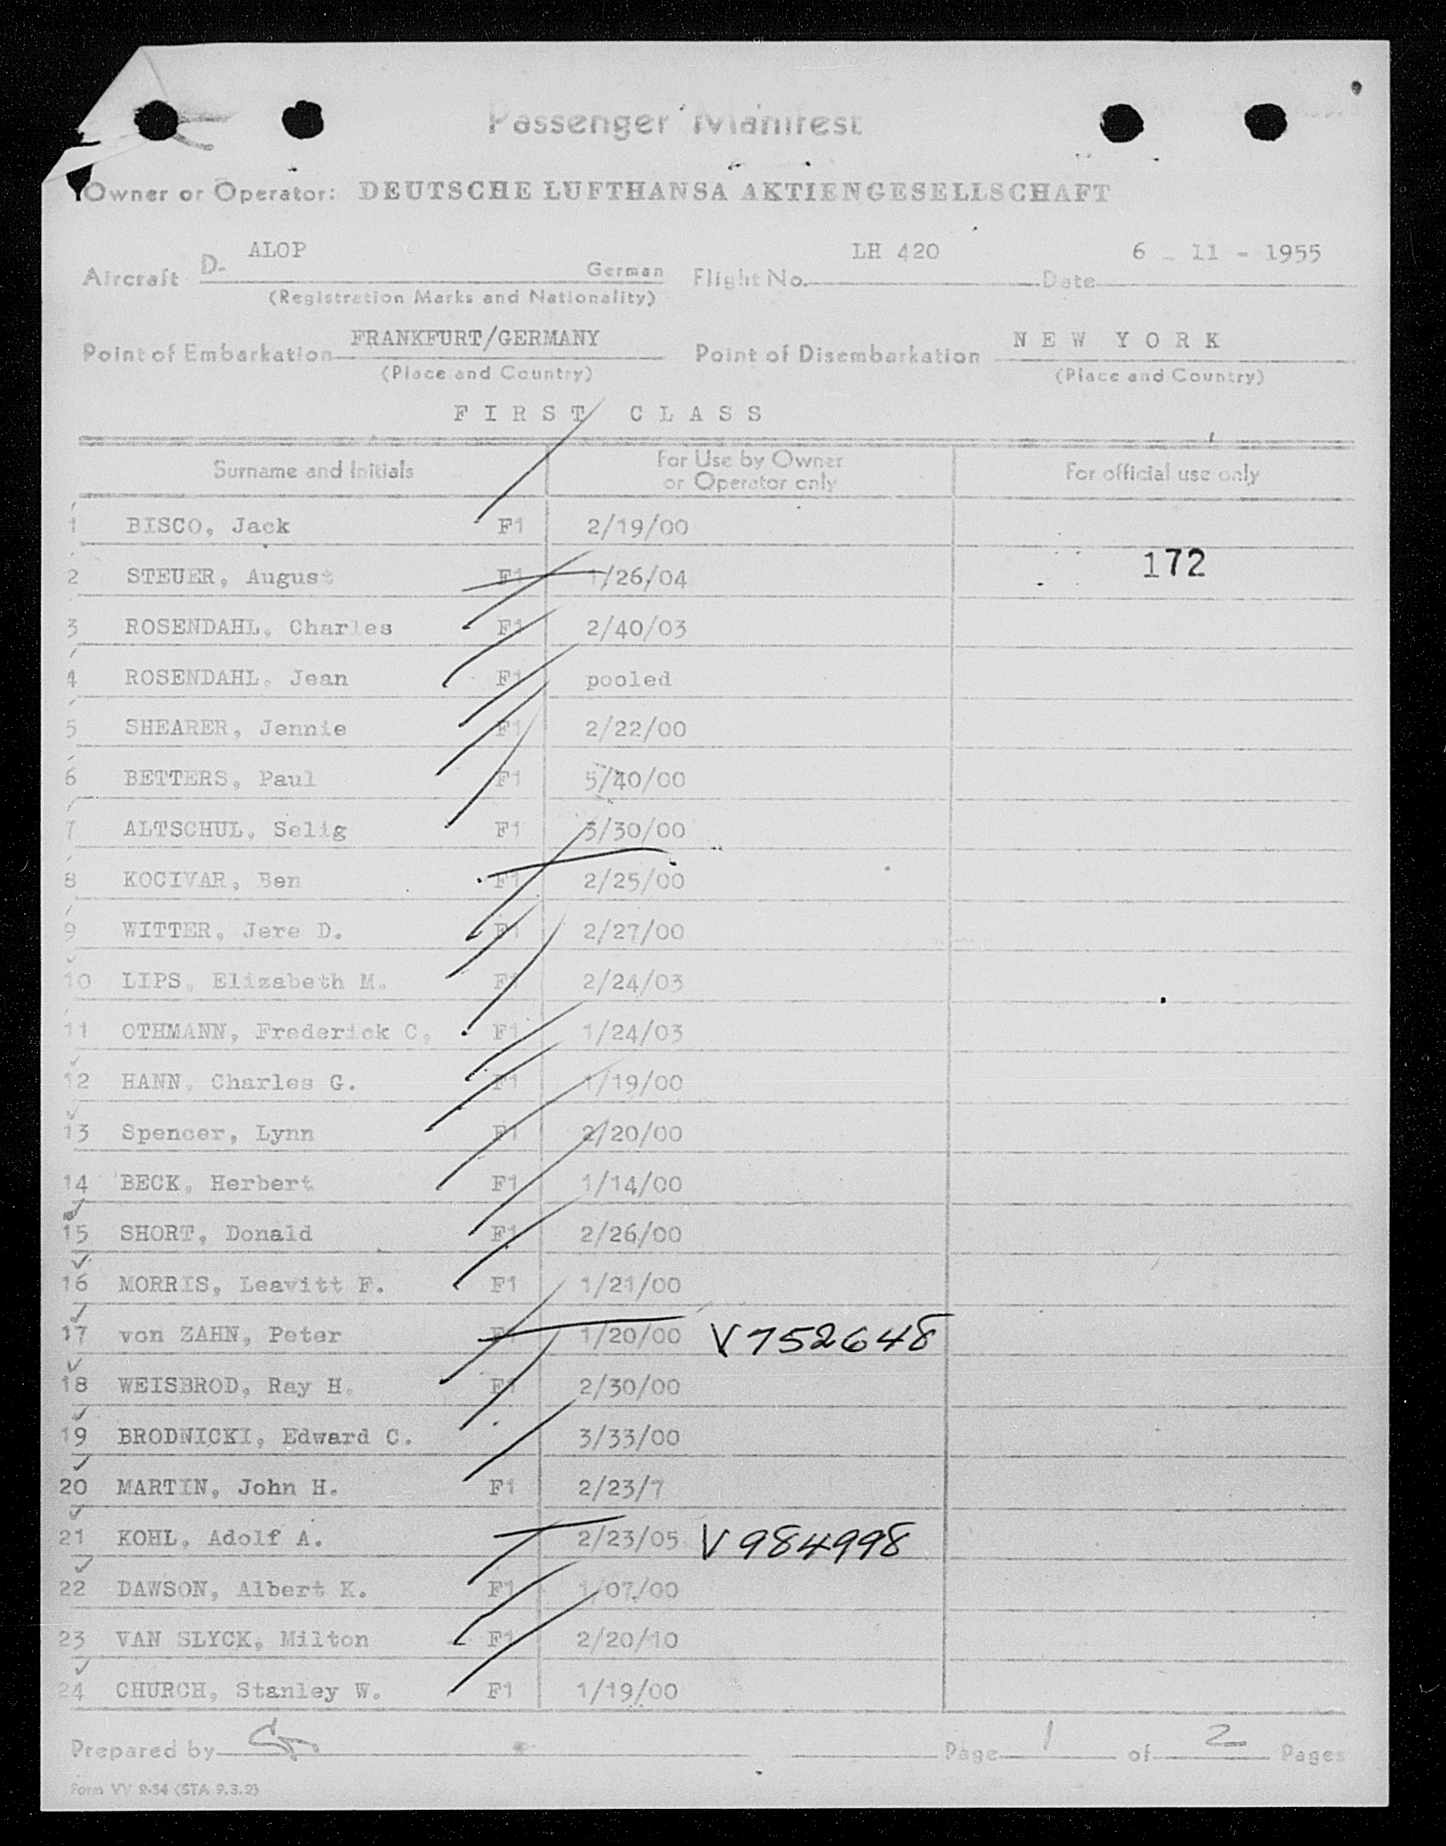 Passenger Manifest
Owner or Operator: DEUTSCHE LUFTHANSA AKTIENGESELLSCHAFT
Aircraft D- ALOP German Flight No. LH 420 Date 6 - 11 - 1955
(Registration Marks and Nationality)
Point of Embarkation FRANKFURT/GERMANY Point of Disembarkation N E W Y O R K
(Place and Country) (Place and Country)
F I R S T C L A S S
Surname and Initials For Use by Owner or Operator only For official use only
1 BISCO, Jack F1 2/19/00
172
2 STEUER, August F1 1/26/04
3 ROSENDAHL, Charles F1 2/40/03
4 ROSENDAHL, Jean F1 pooled
5 SHEARER, Jennie F1 2/22/00
6 BETTERS, Paul F1 5/40/00
7 ALTSCHUL, Selig F1 3/30/00
8 KOCIVAR, Ben F1 2/25/00
9 WITTER, Jere D. F1 2/27/00
10 LIPS, Elizabeth M. F1 2/24/03
11 OTHMANN, Frederick C. F1 1/24/03
12 HANN, Charles G. F1 1/19/00
13 Spencer, Lynn F1 2/20/00
14 BECK, Herbert F1 1/14/00
15 SHORT, Donald F1 2/26/00
16 MORRIS, Leavitt F. F1 1/21/00
17 von ZAHN, Peter F1 1/20/00 V752648
18 WEISBROD, Ray H. F1 2/30/00
19 BRODNICKI, Edward C. 3/33/00
20 MARTIN, John H. F1 2/23/7
21 KOHL, Adolf A. 2/23/05 V984998
22 DAWSON, Albert K. F1 1/07/00
23 VAN SLYCK, Milton F1 2/20/10
24 CHURCH, Stanley W. F1 1/19/00
Prepared by Page 1 of 2 Pages
Form VV 2-54 (STA 9.3.2)